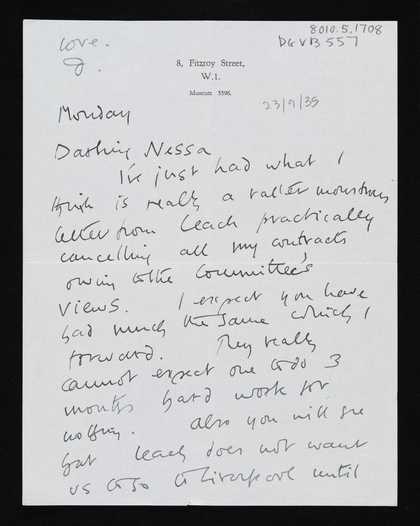 8010.5.1708
DGVB 557
love.
D.
8, Fitzroy Street,
W.1.
Museum 5596.
23/9/35
Monday
Darling Nessa
I've just had what I
think is really a rather monstrous
letter from Leach practically
cancelling all my contracts
owing to the Committee's
views. I expect you have
had much the same which I
forward. They really
cannot expect one to do 3
months hard work for
nothing. Also you will see
that Leach does not want
us to go to Liverpool until